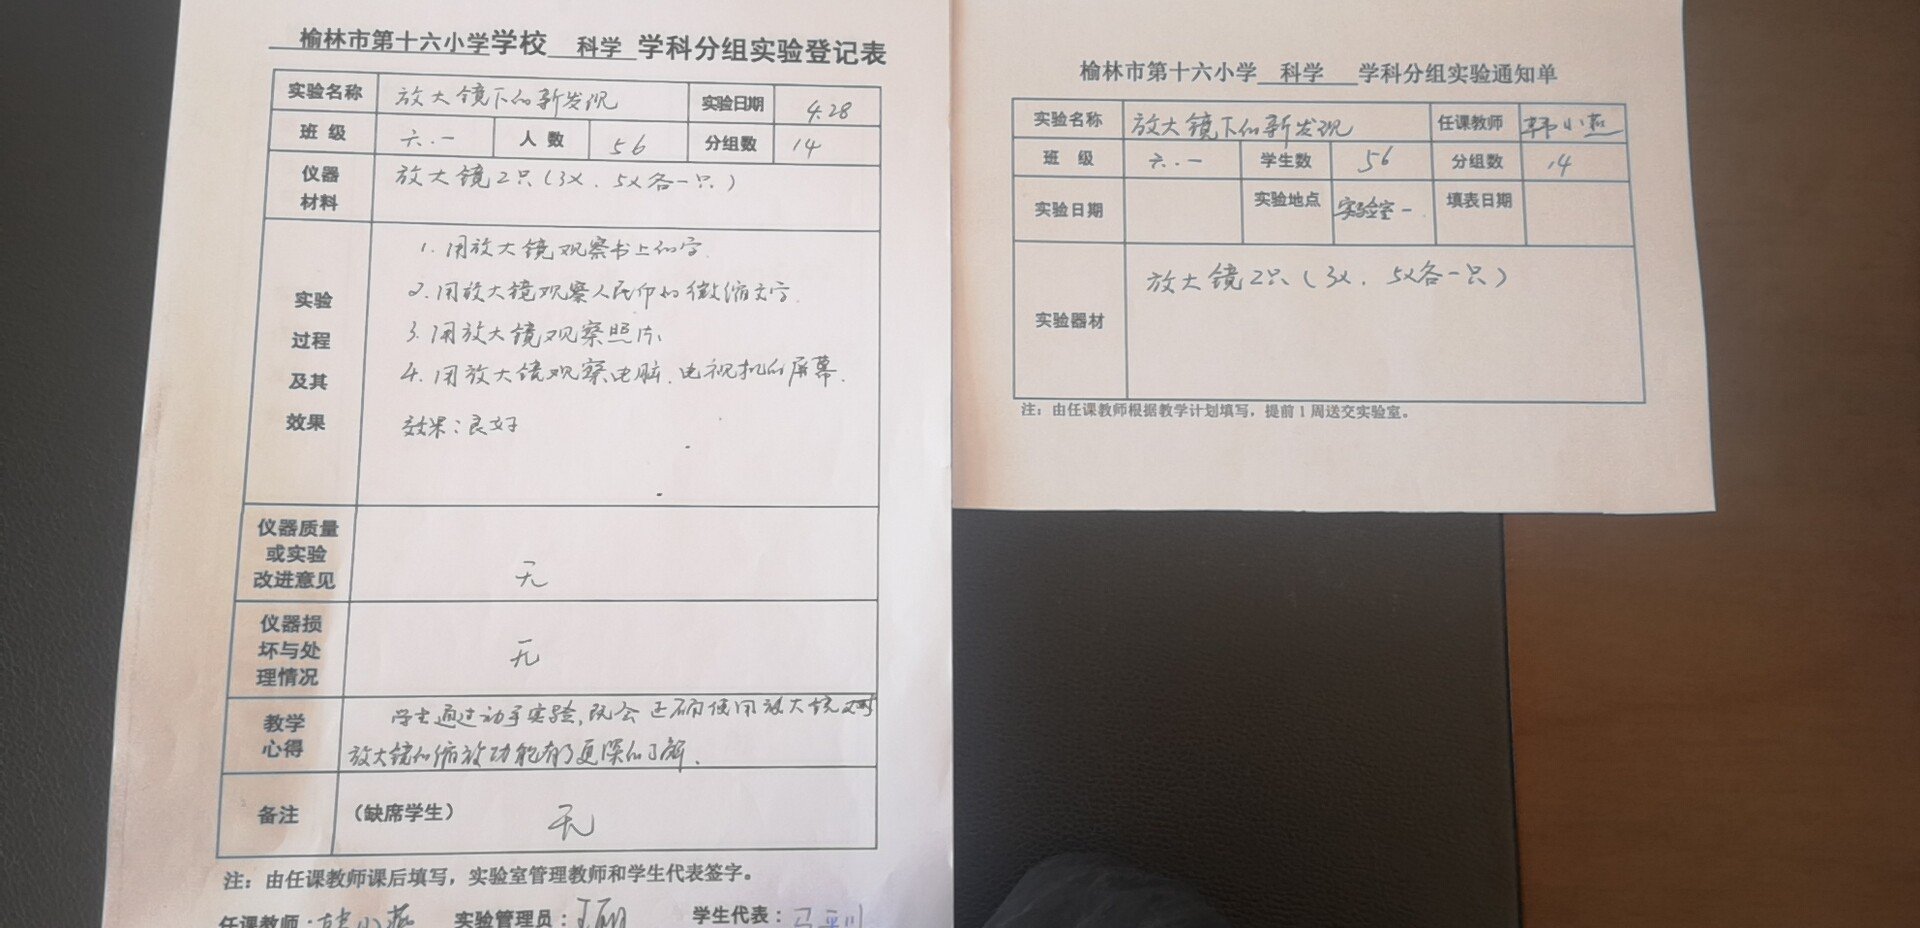 榆林市第十六小学学校 科学 学科分组实验登记表
实验名称 放大镜下的新发现 实验日期 4.28
班 级 六.一 人 数 56 分组数 14
仪器材料 放大镜2只(3X、5X各一只)
实验过程及其效果
1. 用放大镜观察书上的字.
2. 用放大镜观察人民币的微缩文字.
3. 用放大镜观察照片.
4. 用放大镜观察电脑、电视机的屏幕.
效果：良好
仪器质量或实验改进意见 无
仪器损坏与处理情况 无
教学心得 学生通过动手实验,既会正确使用放大镜又对
放大镜的缩放功能有了更深的了解.
备注 （缺席学生） 无
注：由任课教师课后填写，实验室管理教师和学生代表签字。
任课教师：韩小燕 实验管理员： 学生代表：
榆林市第十六小学 科学 学科分组实验通知单
实验名称 放大镜下的新发现 任课教师 韩小燕
班 级 六.一 学生数 56 分组数 14
实验日期 实验地点 实验室一 填表日期
实验器材 放大镜2只(3X、5X各一只)
注：由任课教师根据教学计划填写，提前1周送交实验室。